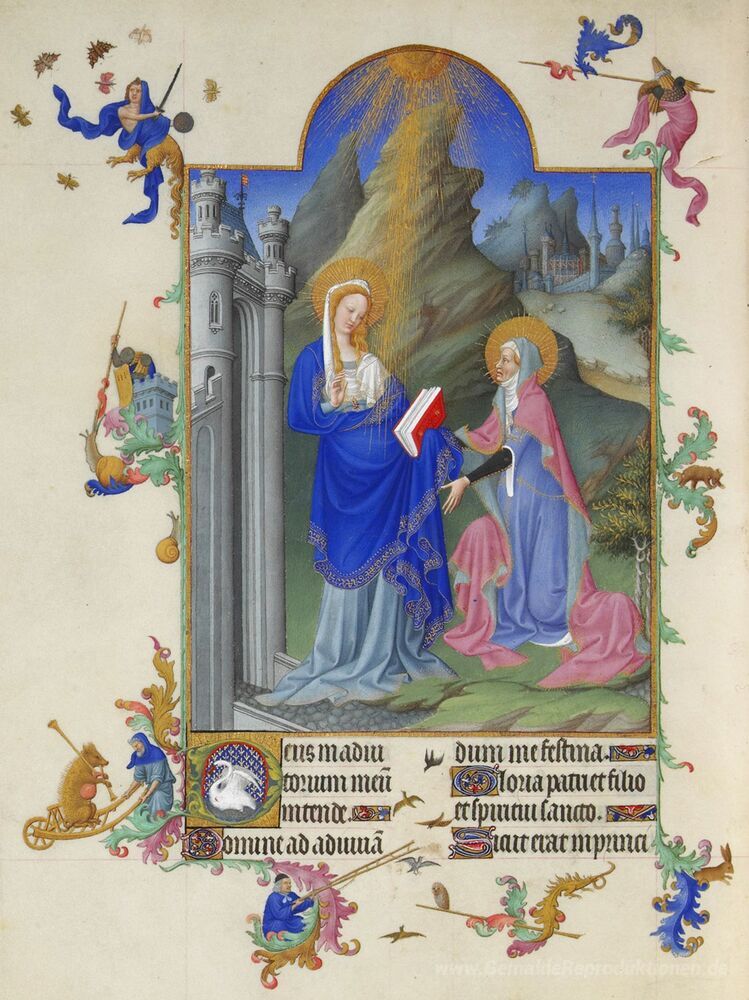 Deus in adiu
torium meū
intende.
Domine ad adiuuā
dum me festina.
Gloria patri et filio
et spiritui sancto.
Sicut erat in princi
www.GemaldeReproduktionen.de